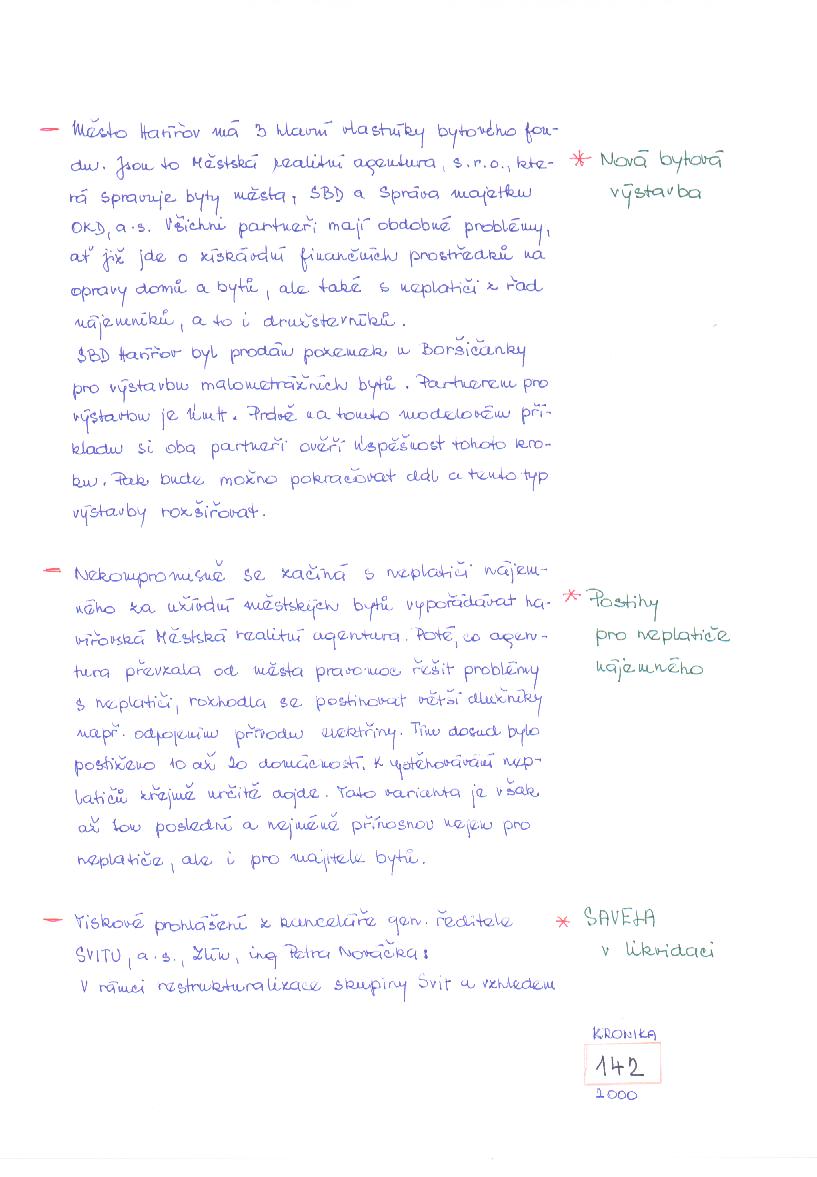 – Město Havířov má 3 hlavní vlastníky bytového fon-
du. Jsou to Městská realitní agentura, s.r.o., kte-
rá spravuje byty města, SBD a Správa majetku
OKD, a.s. Všichni partneři mají obdobné problémy,
ať již jde o získávání finančních prostředků na
opravy domů a bytů, ale také s neplatiči z řad
nájemníků, a to i družstevníků.
SBD Havířov byl prodán pozemek u Boršičanky
pro výstavbu malometrážních bytů. Partnerem pro
výstavbu je Právě na tomto modelovém pří-
kladu si oba partneři ověří úspěšnost tohoto kro-
ku. Pak bude možno pokračovat dál a tento typ
výstavby rozšiřovat.
* Nová bytová
výstavba
– Nekompromisně se začíná s neplatiči nájem-
ného za užívání městských bytů vypořádávat ha-
vířovská Městská realitní agentura. Poté, co agen-
tura převzala od města pravomoc řešit problémy
s neplatiči, rozhodla se postihovat větší dlužníky
např. odpojením přívodu elektřiny. Tím dosud bylo
postiženo 10 až 20 domácností. K vystěhovávání nep-
latičů zřejmě určitě dojde. Tato varianta je však
až tou poslední a nejméně přínosnou nejen pro
neplatiče, ale i pro majitele bytů.
* Postihy
pro neplatiče
nájemného
– Tiskové prohlášení z kanceláře gen. ředitele
SVITU, a.s., Zlín, ing Petra Nováčka:
V rámci restrukturalizace skupiny Svit a vzhledem
* SAVELA
v likvidaci
KRONIKA
142
2000